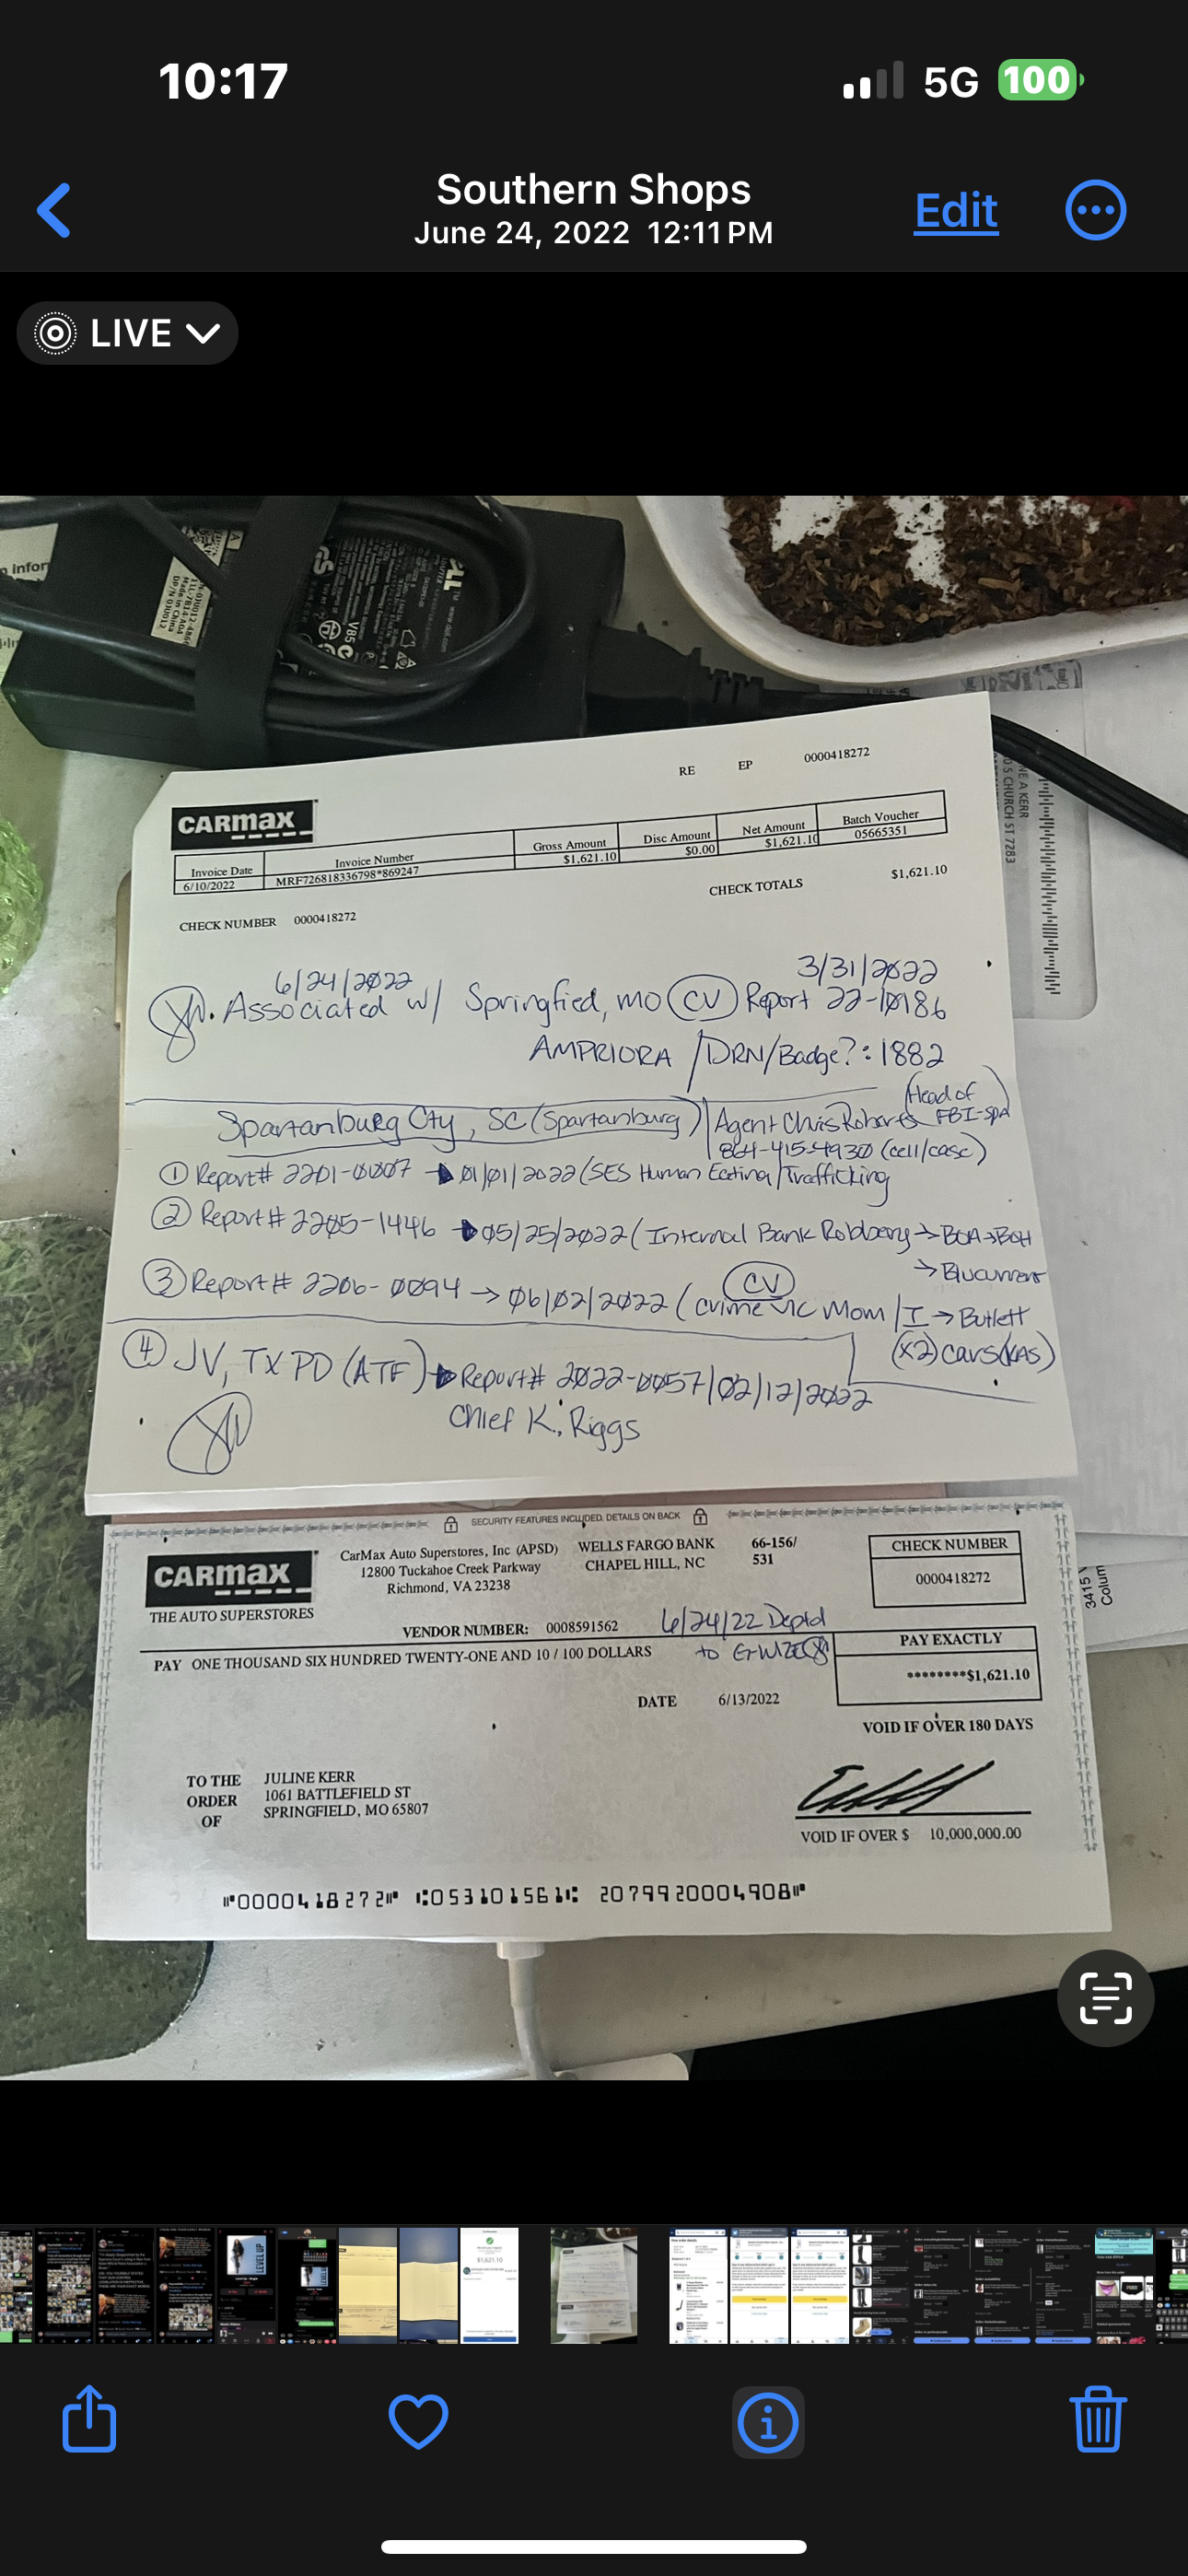 10:17
5G 100
Southern Shops
June 24, 2022 12:11 PM
Edit
LIVE
DELL
Made in China
NE A KERR
0 S CHURCH ST 7283
RE EP 0000418272
CARMAX
Invoice Date Invoice Number Gross Amount Disc Amount Net Amount Batch Voucher
6/10/2022 MRF726818336798*869247 $1,621.10 $0.00 $1,621.10 05665351
CHECK NUMBER 0000418272 CHECK TOTALS $1,621.10
6/24/2022 3/31/2022
Associated w/ Springfied, MO CV Report 22-10186
AMPRIORA /DRN/Badge?: 1882
Spartanburg Cty, SC (Spartanburg) Agent Chris Roberts (Head of FBI-SPA)
864-415-4930 (cell/case)
1 Report# 2201-0007 → 01/01/2022 (SES Human Eating/Trafficking
2 Report# 2205-1446 → 05/25/2022 (Internal Bank Robbery → BOA → BOH
→ Blucurrent
3 Report# 2206-0094 → 06/02/2022 (CV crime vic Mom / I → Butlett
(x2) cars (KAS)
4 JV, TX PD (ATF) → Report# 2022-0057/02/12/2022
Chief K. Riggs
SECURITY FEATURES INCLUDED. DETAILS ON BACK
CARMAX
THE AUTO SUPERSTORES
CarMax Auto Superstores, Inc (APSD)
12800 Tuckahoe Creek Parkway
Richmond, VA 23238
WELLS FARGO BANK
CHAPEL HILL, NC
66-156/
531
CHECK NUMBER
0000418272
VENDOR NUMBER: 0008591562
6/24/22 Deptd
to
PAY ONE THOUSAND SIX HUNDRED TWENTY-ONE AND 10 / 100 DOLLARS
PAY EXACTLY
********$1,621.10
DATE 6/13/2022
VOID IF OVER 180 DAYS
TO THE ORDER OF
JULINE KERR
1061 BATTLEFIELD ST
SPRINGFIELD, MO 65807
VOID IF OVER $ 10,000,000.00
⑈0000418272⑈ ⑆053101561⑆ 2079920004908⑈
3415
Colum
LEVEL UP
$1,621.10